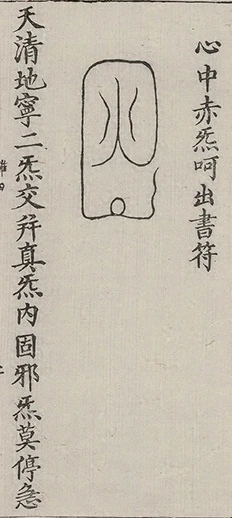 心中赤炁呵出書符
天清地寧二炁交并真炁内固邪炁莫停急